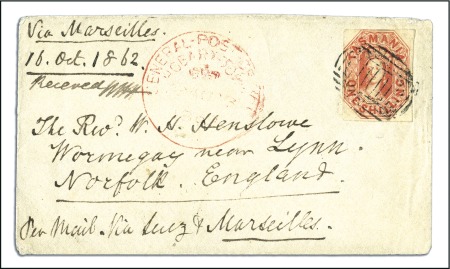 Via Marseilles.
16. Oct. 1862.
Received
GENERAL POST
TASMANIA
ONE SHILLING
The Revd. W. H. Henslowe
Wormegay near Lynn.
Norfolk. England.
Per Mail. Via Suez & Marseilles.